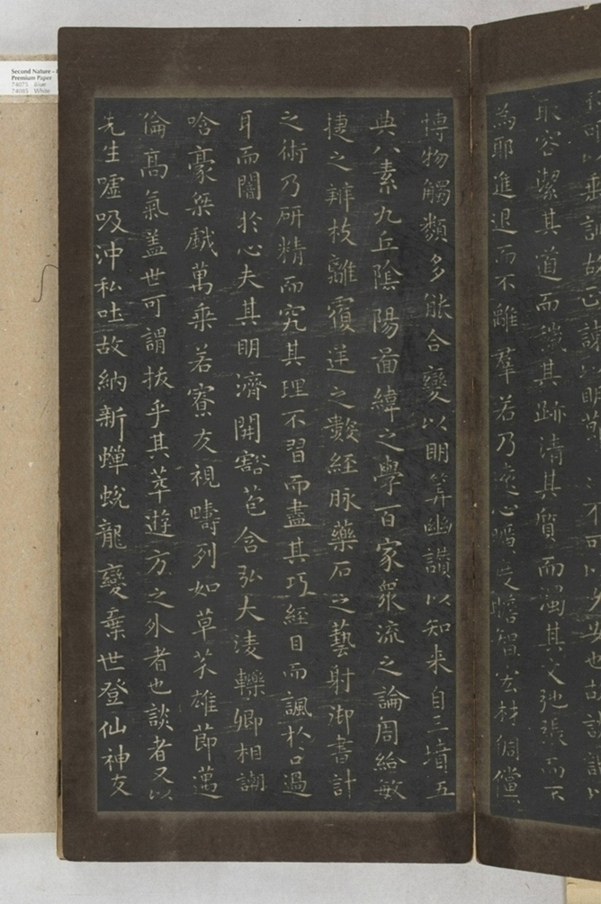 可以垂訓故正諫以明節 不可以久安也故詼諧以
取容潔其道而穢其跡清其質而濁其文弛張而不
為耶進退而不離羣若乃遠心曠度贍智宏材倜儻
博物觸類多能合變以明筭幽讚以知来自三墳五
典八素九丘陰陽啚緯之學百家衆流之論周給敏
捷之辨枝離覆逆之數經脉藥石之藝射御書計
之術乃研精而究其理不習而盡其巧經目而諷於口過
耳而闇於心夫其明濟開豁苞含弘大淩轢卿相謿
哈豪桀戲萬乗若寮友視疇列如草芥雄節邁
倫高氣盖世可謂拔乎其萃遊方之外者也談者又以
先生嘘吸沖和吐故納新蟬蛻龍變棄世登仙神友
Second Nature -
Premium Paper
Blue
White